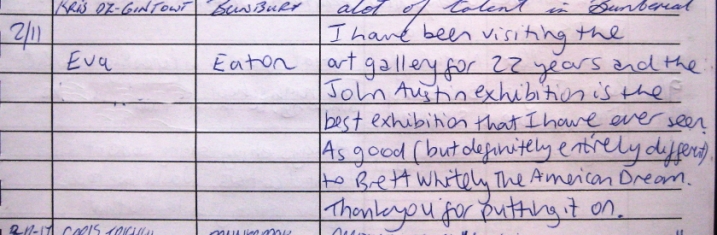 KRIS DZ-GINTOWT BUNBURY alot of talent in Bunberial
2/11 I have been visiting the
Eva Eaton art gallery for 22 years and the
John Austin exhibition is the
best exhibition that I have ever seen.
As good (but definitely entirely different)
to Brett Whitely The American Dream.
Thankyou for putting it on.
2-11-17 CHRIS